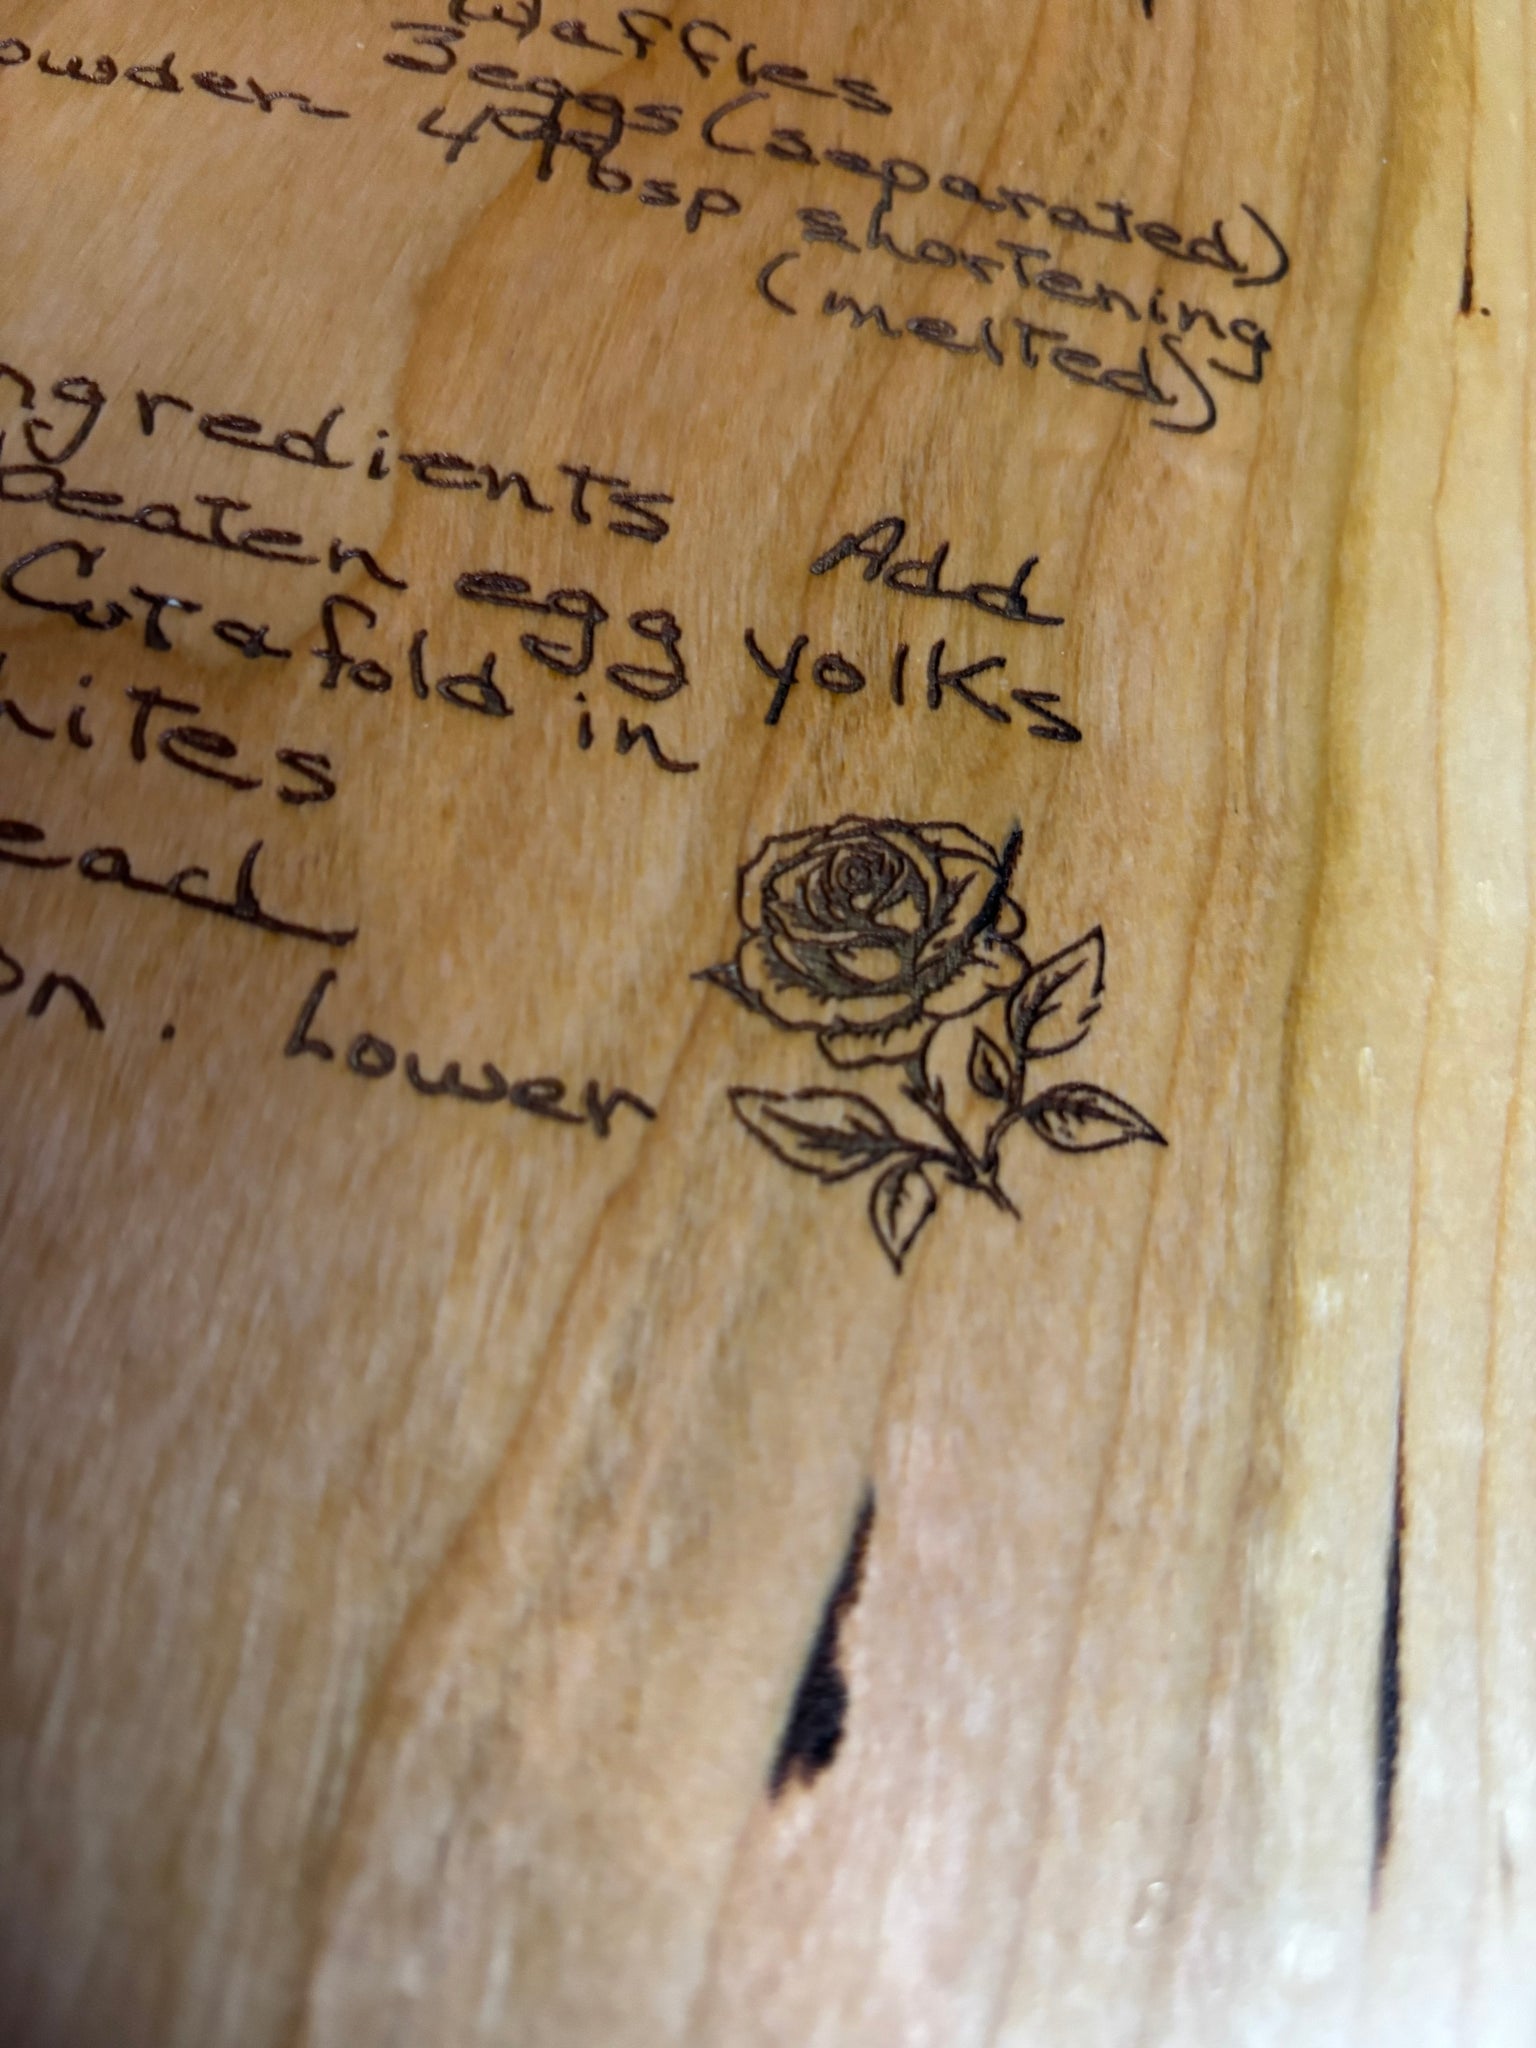 Waffles
owder 3 eggs (separated)
4 Tbsp shortening
(melted)
ngredients Add
beaten egg yolks
Cut & fold in
hites
ead
on. Lower